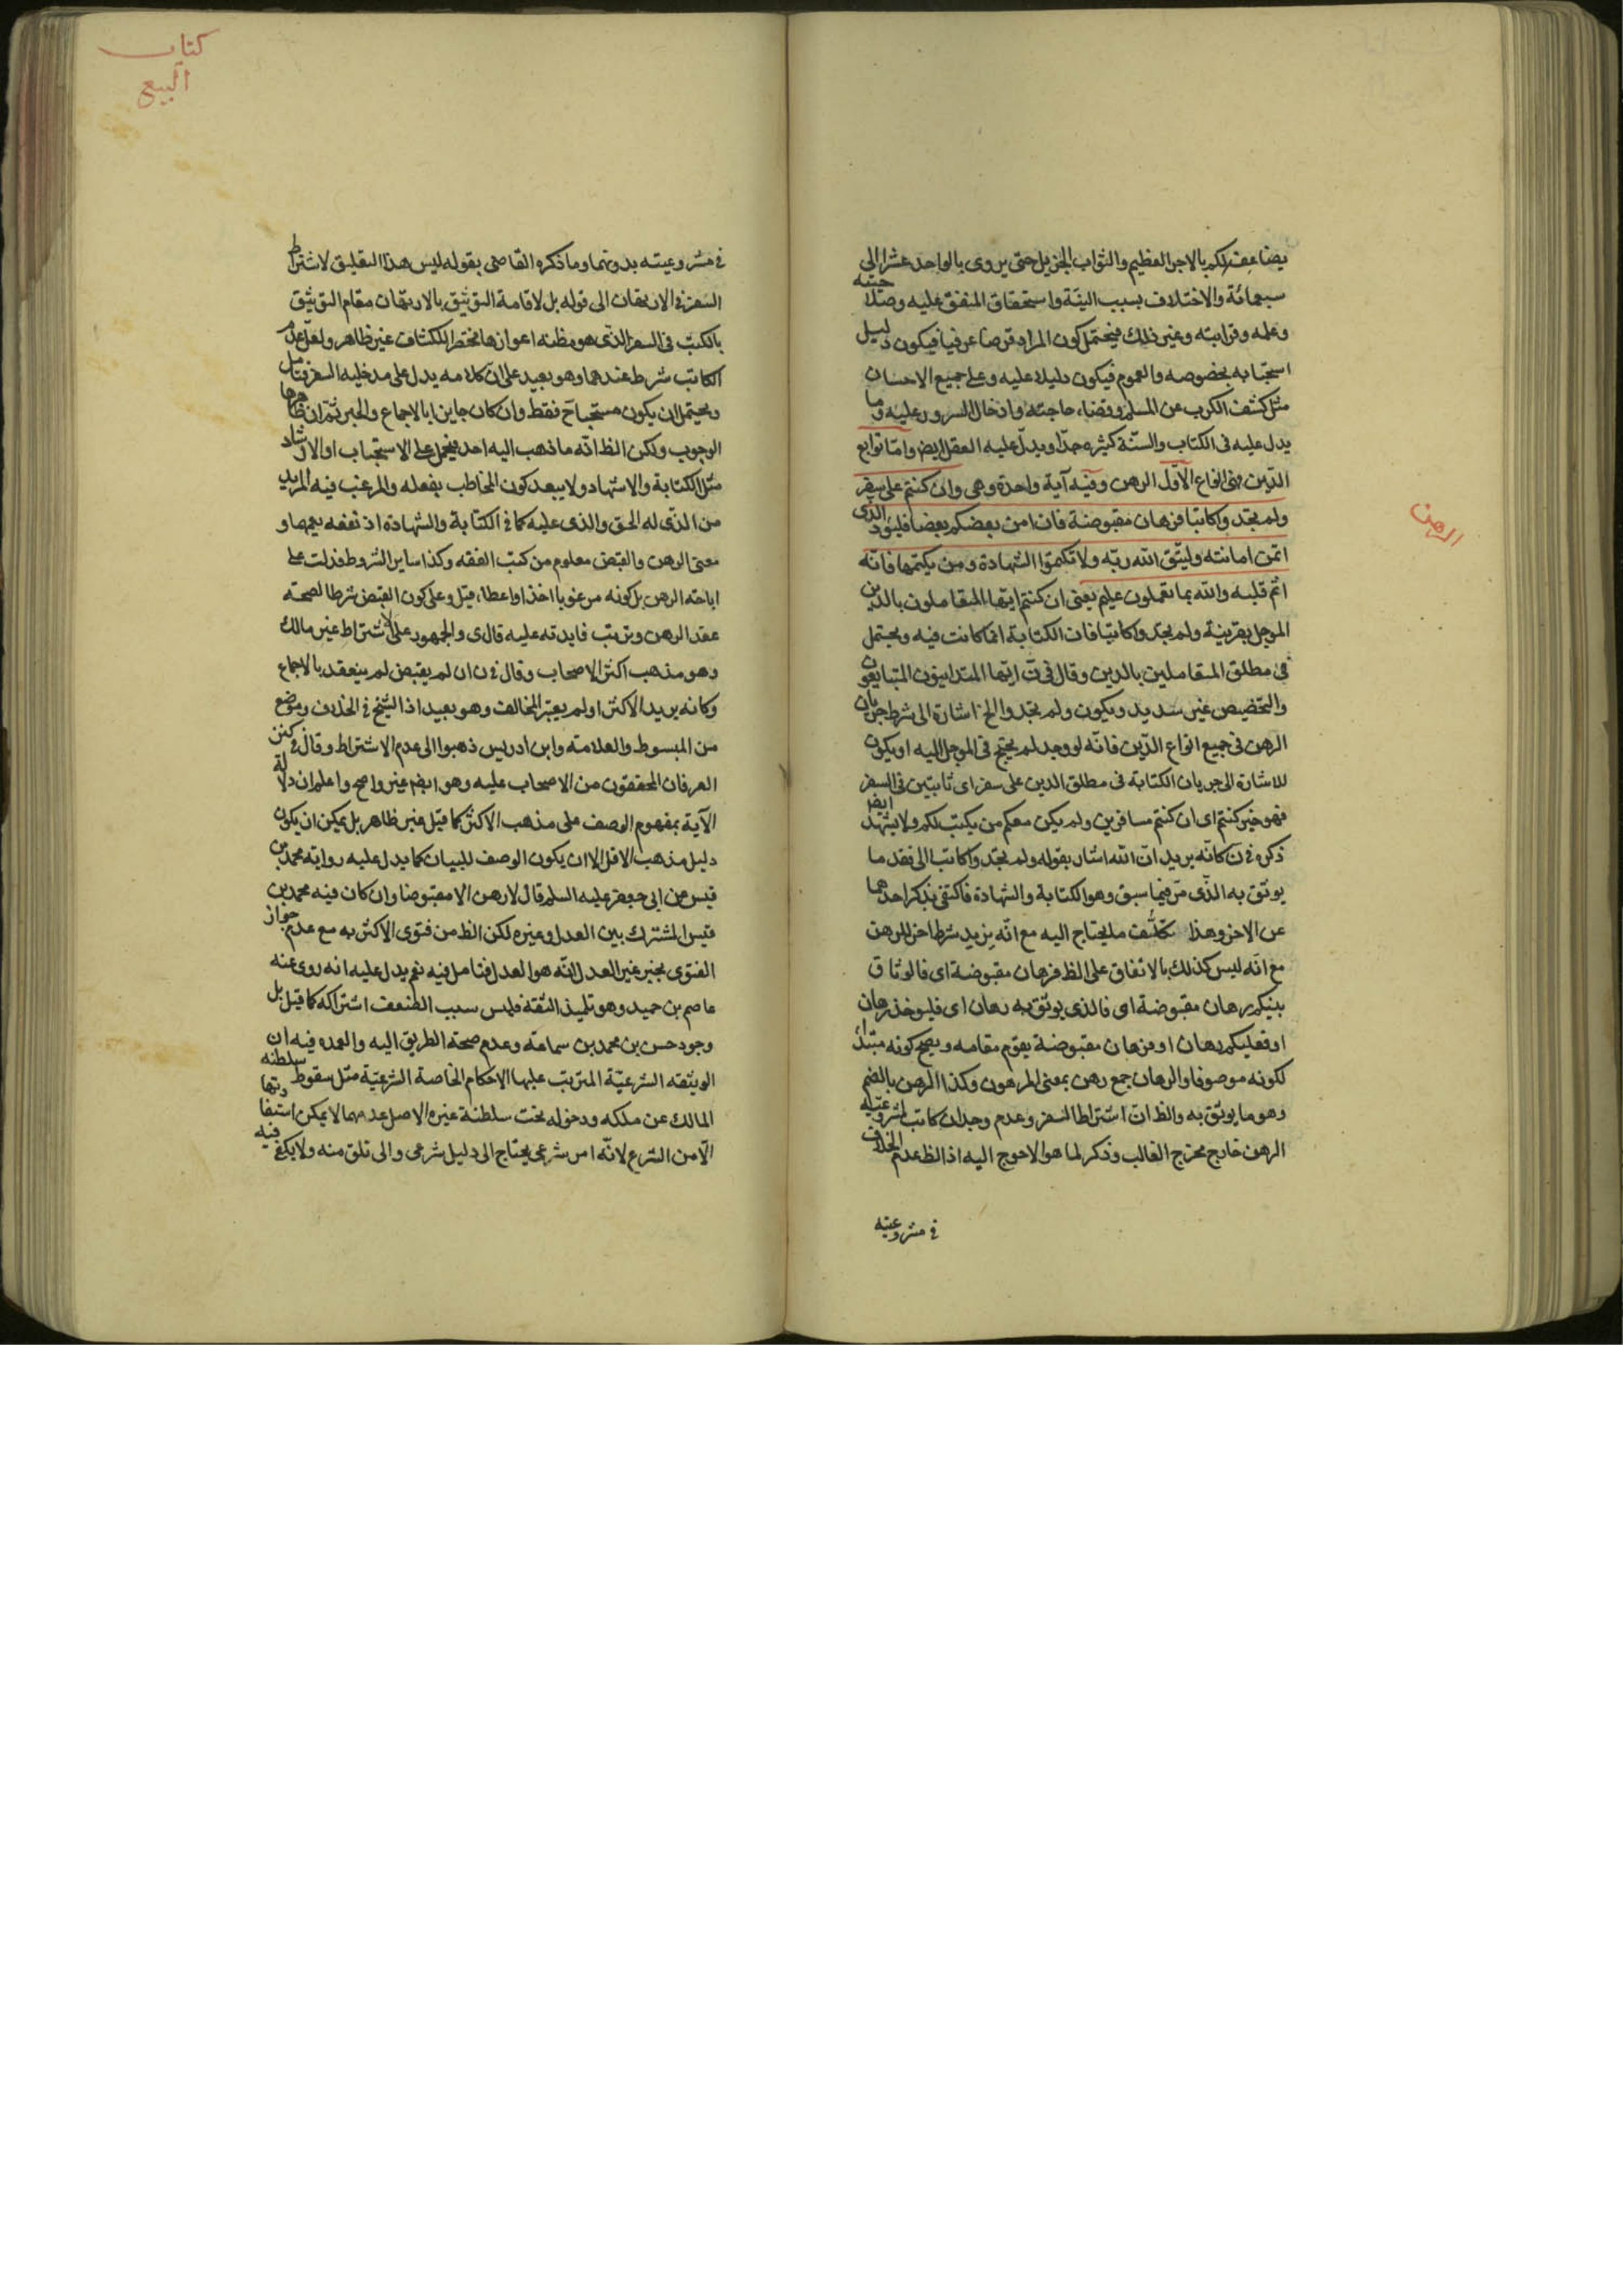 يضاعف لكم بالاجر العظيم والثواب الجزيل حتى يروى بالواحد عشرا الى
سبعمائة والاختلاف بسبب النية واستحقاق المنفق عليه وصلاحيته
وعلمه وقرابته وغير ذلك فيحتمل كون المراد قرضا عرفيا فيكون دليل
استحبابه بخصوصه والعموم فيكون دليلا عليه وعلى جميع الاحسان
مثل كشف الكرب عن المسلم وقضاء حاجته وادخال السرور عليه وما
يدل عليه فى الكتاب والسنّة كثيره جدّا ويدلّ عليه العقل ايضا وامّا توابع
الدّين فهى انواع الاوّل الرهن وفيه آية واحدة وهى وان كنتم على سفر
ولم تجدوا كاتبا فرهان مقبوضة فان امن بعضكم بعضا فليؤد الذى
ائتمن امانته وليتّق الله ربّه ولا تكتموا الشهادة ومن يكتمها فانّه
اثم قلبه والله بما تعملون عليم يعنى ان كنتم ايّها المتعاملون بالدين
الموجل بقرينة ولم تجدوا كاتبا فان الكتابة انما كانت فيه ويحتمل
فى مطلق المتعاملين بالدين وقال فى ت ايّها المتداينون المتبايعون
والتخصيص غير سديد ويكون ولم تجدوا الخ اشارة الى شرط جريان
الرهن فى جميع انواع الدّين فانّه لو وجد لم يحتج فى الموجل اليه او يكون
للاشارة الى جريان الكتابة فى مطلق الدين على سفر اى ثابتين فى السفر
فهو خبر كنتم اى ان كنتم مسافرين ولم يكن معكم من يكتب لكم ولا يشهد ايض
ذكره فى ن كانّه يريد انّ الله اشار بقوله ولم تجدوا كاتبا الى فقد ما
يوثق به الذّى مرّ فيما سبق وهو الكتابة والشهادة فاكتفى بذكر احدهما
عن الاخر وهذا تكلّف ما يحتاج اليه مع انّه يزيد شرطا اخر للرهن
مع انّه ليس كذلك بالاتفاق على الظ فرهان مقبوضة اى فالوثاق
بينكم رهان مقبوضة اى فالذى يوثق به رهان اى فليوخذ رهان
او فعليكم رهان او فرهان مقبوضة يقوم مقامه ويصح كونه مبتداء
لكونه موصوفا والرهان جمع رهن بمعنى المرهون وكذا الرهن بالضم
وهو ما يوثق به والظ ان اشتراط السفر وعدم وجدان كاتب لمشروعيّة
الرهن خارج مخرج الغالب وذكر لما هو الاحوج اليه اذ الظ عدم الخلاف
فى مشروعيته
الرهن
كتاب
البيع
فى مشروعيته بدونهما وما ذكره القاضى بقوله ليس هذا التعليق لاشتراط
السفر فى الارتهان الى قوله بل لاقامة التوثيق بالارتهان مقام التوثيق
بالكتب فى السفر الذّى هو مظنه اعوازها غير ظاهر ولعل عدم
الكاتب شرط عندهما وهو بعيد على ان كلامه يدل على مدخليه السفر فتامل
ويحتمل ان يكون مستحبا فقط وان كان جايزا بالاجماع والخبر ثمّ ان ظاهرها
الوجوب ولكن الظ انّه ما ذهب اليه احد فيحمل على الاستحباب او الارشاد
مثل الكتابة والاشهاد ولا يبعد كون المخاطب بفعله والمرغب فيه المريد
من الذّى له الحق والذى عليه كما فى الكتابة والشهادة اذ نفعه يعمهما و
معنى الرهن والقبض معلوم من كتب الفقه وكذا ساير الشروط فدلت على
اباحة الرهن بل كونه مرغوبا اخذا واعطاء قيل وعلى كون القبض شرطا لصحة
عقد الرهن وترتب فايدته عليه قال ى والجمهور على الاشتراط غير مالك
وهو مذهب اكثر الاصحاب وقال فى ن ان لم يقبض لم ينعقد بالاجماع
وكانه يريد الاكثر او لم يعتبر المخالف وهو بعيد اذ الشيخ فى الخلاف وموضع
من المبسوط والعلامة وابن ادريس ذهبوا الى عدم الاشتراط وقال فى كنز
العرفان المحققون من الاصحاب عليه وهو ايضا غير واضح واعلم ان دلالة
الآية بمفهوم الوصف على مذهب الاكثر كما قيل غير ظاهر بل يمكن ان يكون
دليل مذهب الاقل الا ان يكون الوصف للبيان كما يدل عليه رواية محمد بن
قيس عن ابى جعفر عليه السلم قال لا رهن الا مقبوضا وان كان فيه محمد بن
قيس المشترك بين العدل وغيره لكن الظ من فتوى الاكثر به مع عدم جواز
الفتوى بخبر غير العدل انّه هو العدل فتامل فيه نعم يدل عليه انه روى عنه
عاصم بن حميد وهو تلميذ الثقة فليس سبب الضعف اشتراكه كما قيل بل
وجود حسن بن محمد بن سماعة وعدم صحة الطريق اليه والعمده فيه ان
الوثيقه الشرعيّة المترتب عليها الاحكام الخاصة الشرعيّة مثل سقوط سلطنه
المالك عن ملكه ودخوله تحت سلطنة غيره الاصل عدمهما لا يمكن استفادتها
الّا من الشرع لانّه امر شرعى يحتاج الى دليل شرعى والى تلق منه ولا يكفى فيه